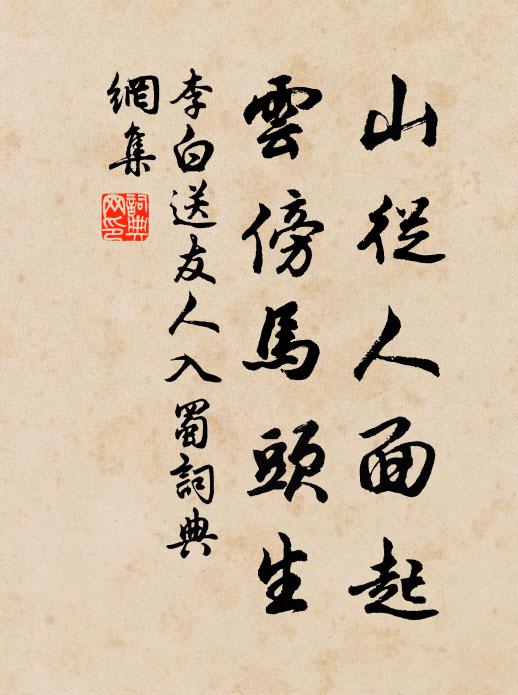 山從人面起
雲傍馬頭生
李白送友人入蜀詞典
網集
詞典
网印